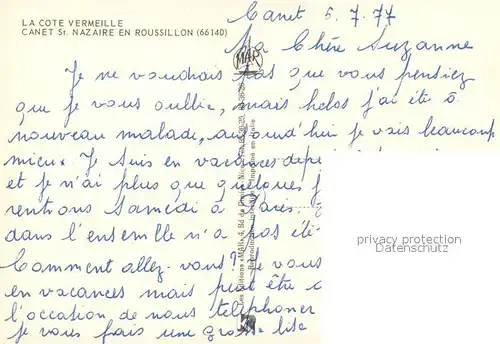 LA COTE VERMEILLE
CANET St. NAZAIRE EN ROUSSILLON (66140)
Canet 5.7.77
Ma Chère Suzanne
Je ne voudrais pas que vous pensiez
que je vous oublie, mais helas j'ai été à
nouveau malade, aujourd'hui je vais beaucoup
mieux. Je suis en vacances depu
et je n'ai plus que quelques j
rentrons Samedi à Paris.
dans l'ensemble n'a pas été
Comment allez-vous? Je vous
en vacances mais peut être
l'occasion de nous telephoner
je vous fais une grosse bise
MAR
Les Editions «MAR»
Imprimé en Italie
privacy protection
Datenschutz